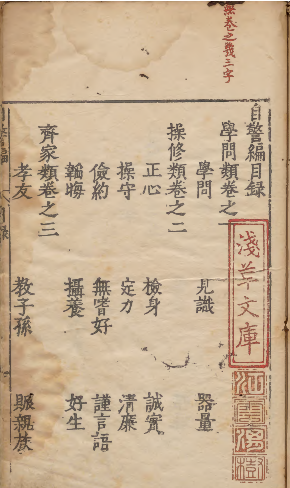 無卷之幾三字
自警編目錄
學問類卷之一
學問 見識 器量
操修類卷之二
正心 檢身 誠實
操守 定力 清廉
儉約 無嗜好 謹言語
韜晦 攝養 好生
齊家類卷之三
孝友 教子孫 賑親族
淺草文庫
江雲渭樹